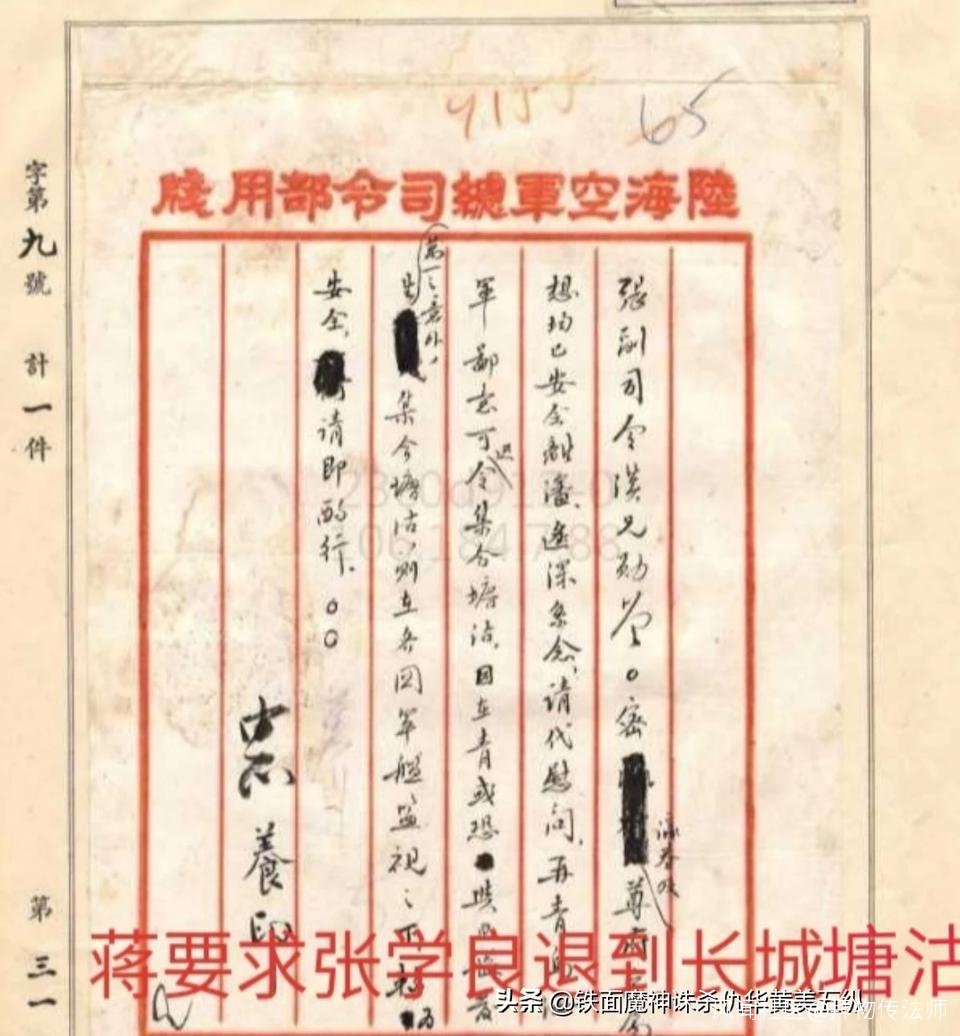 65
陸海空軍總司令部用牋
張副司令漢兄勛鑒。密
尊府
想均已安全離瀋、遙深系念、請代慰問、再青島
軍鄙意可迅令集合塘沽、因在青或恐與日艦發
生
意外、
集合塘沽、則在各國軍艦監視之下較為
安全、請即酌行。
中正 養印
字第九號 計一件 第三一
蒋要求张学良退到长城塘沽
头条 @铁面魔神诛杀仇华